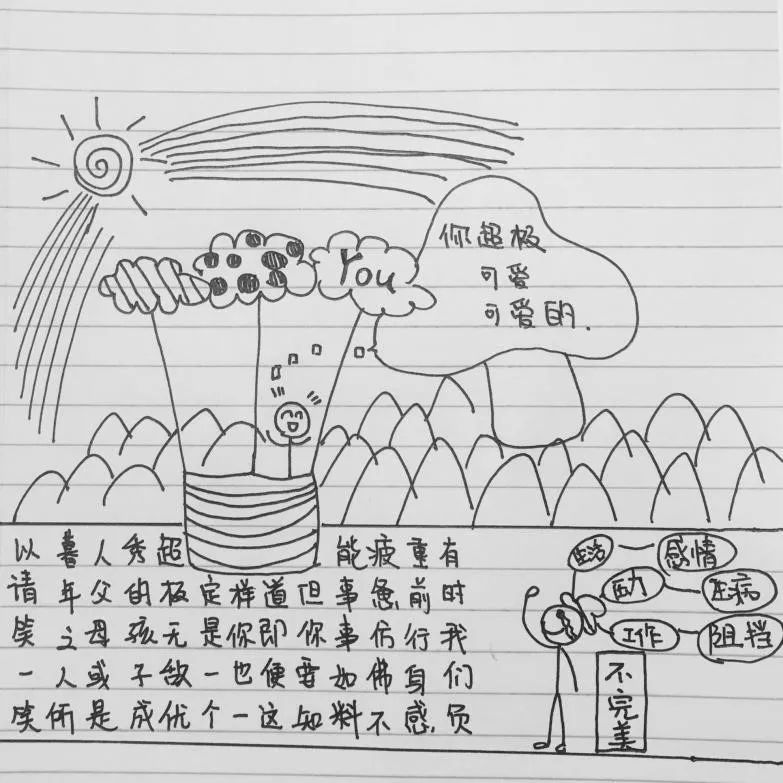 You
你超极
可爱
可爱的.
有时我们负
重前行身感
疲惫仿佛不
能事事如料
但你要知
道即便这
样你也一
定是一个
超极无敌优
秀的孩子成
人父母或是
暮年之人所
以请笑一笑
生活
感情
压力
生病
工作
阻挡
不完美